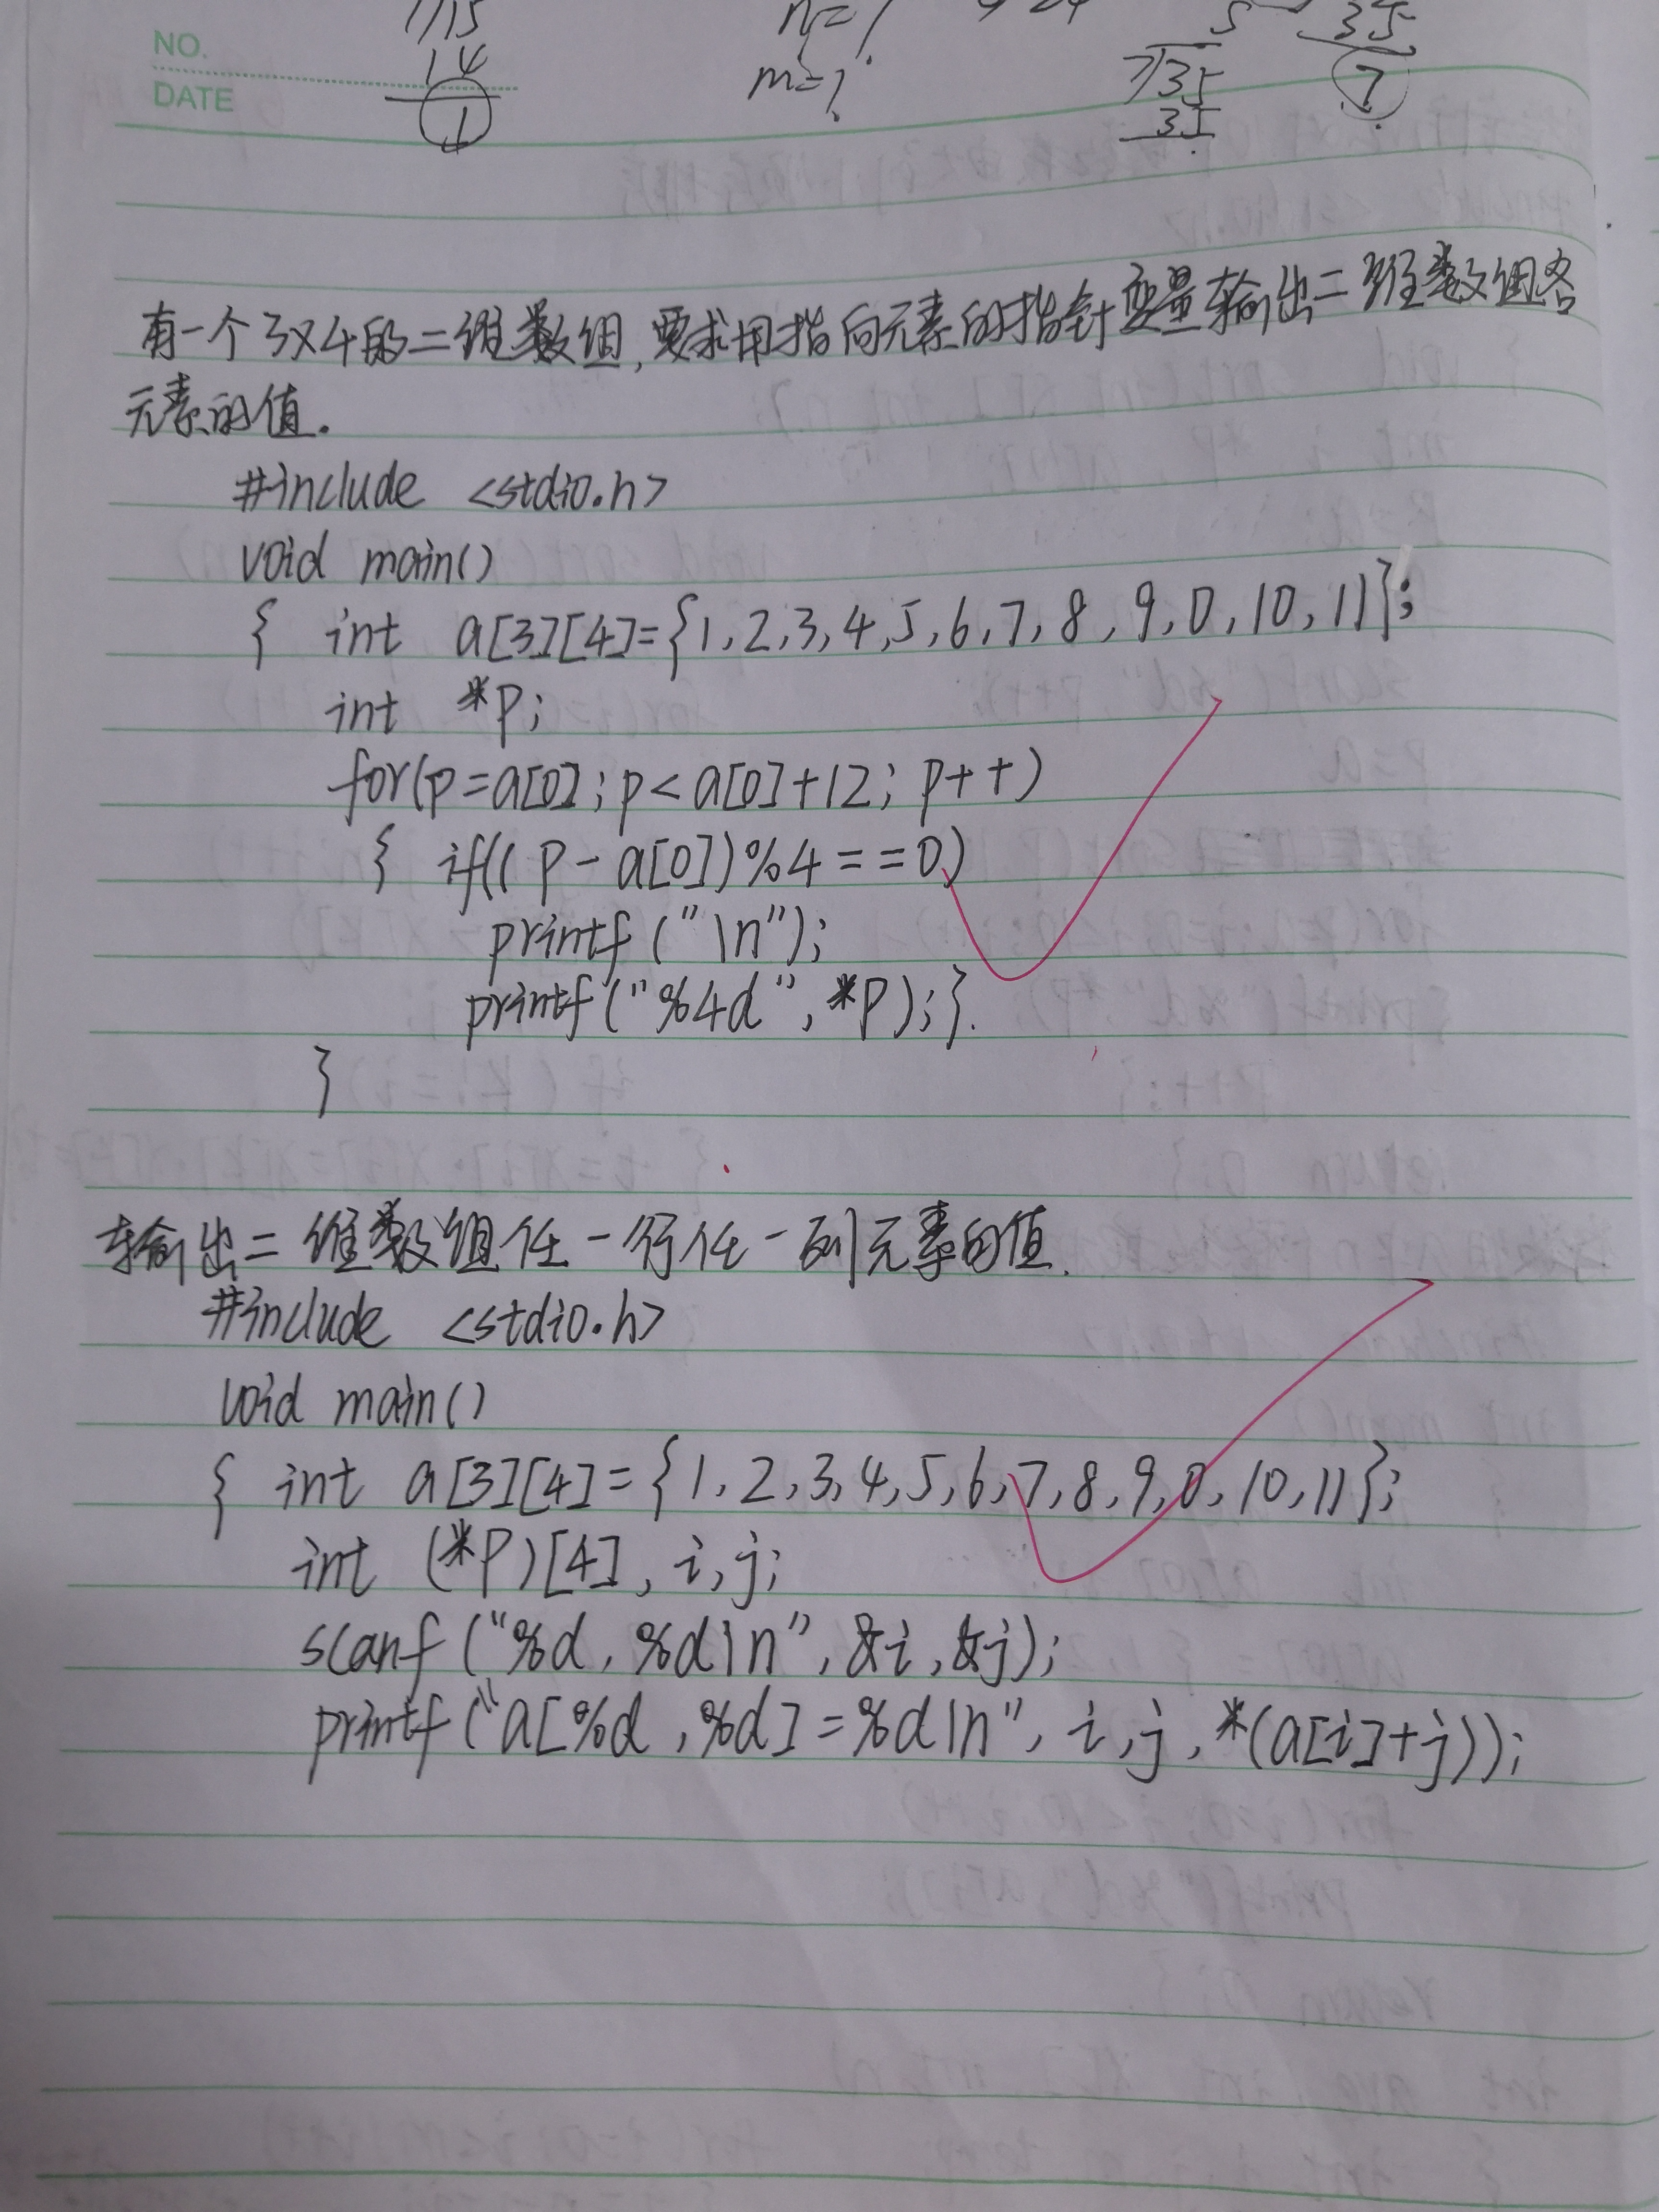 NO.
DATE
14
1
m=?
7 35
35
7
有一个3×4的二维数组,要求用指向元素的指针变量输出二维数组各
元素的值.
#include <stdio.h>
void main()
{ int a[3][4]={1,2,3,4,5,6,7,8,9,0,10,11};
int *p;
for(p=a[0];p<a[0]+12;p++)
{ if((p-a[0])%4==0)
printf("\n");
printf("%4d",*p);}
}
输出二维数组任一行任一列元素的值.
#include <stdio.h>
void main()
{ int a[3][4]={1,2,3,4,5,6,7,8,9,0,10,11};
int (*p)[4],i,j;
scanf("%d,%d\n",&i,&j);
printf("a[%d,%d]=%d\n",i,j,*(a[i]+j));